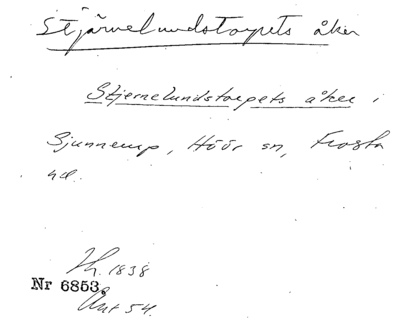 Stjärnelundstorpets åker
Stjernelundstorpets åker i
Sjunnerup, Höör sn, Frosta
hd.
1838
Nr 6853.
54.